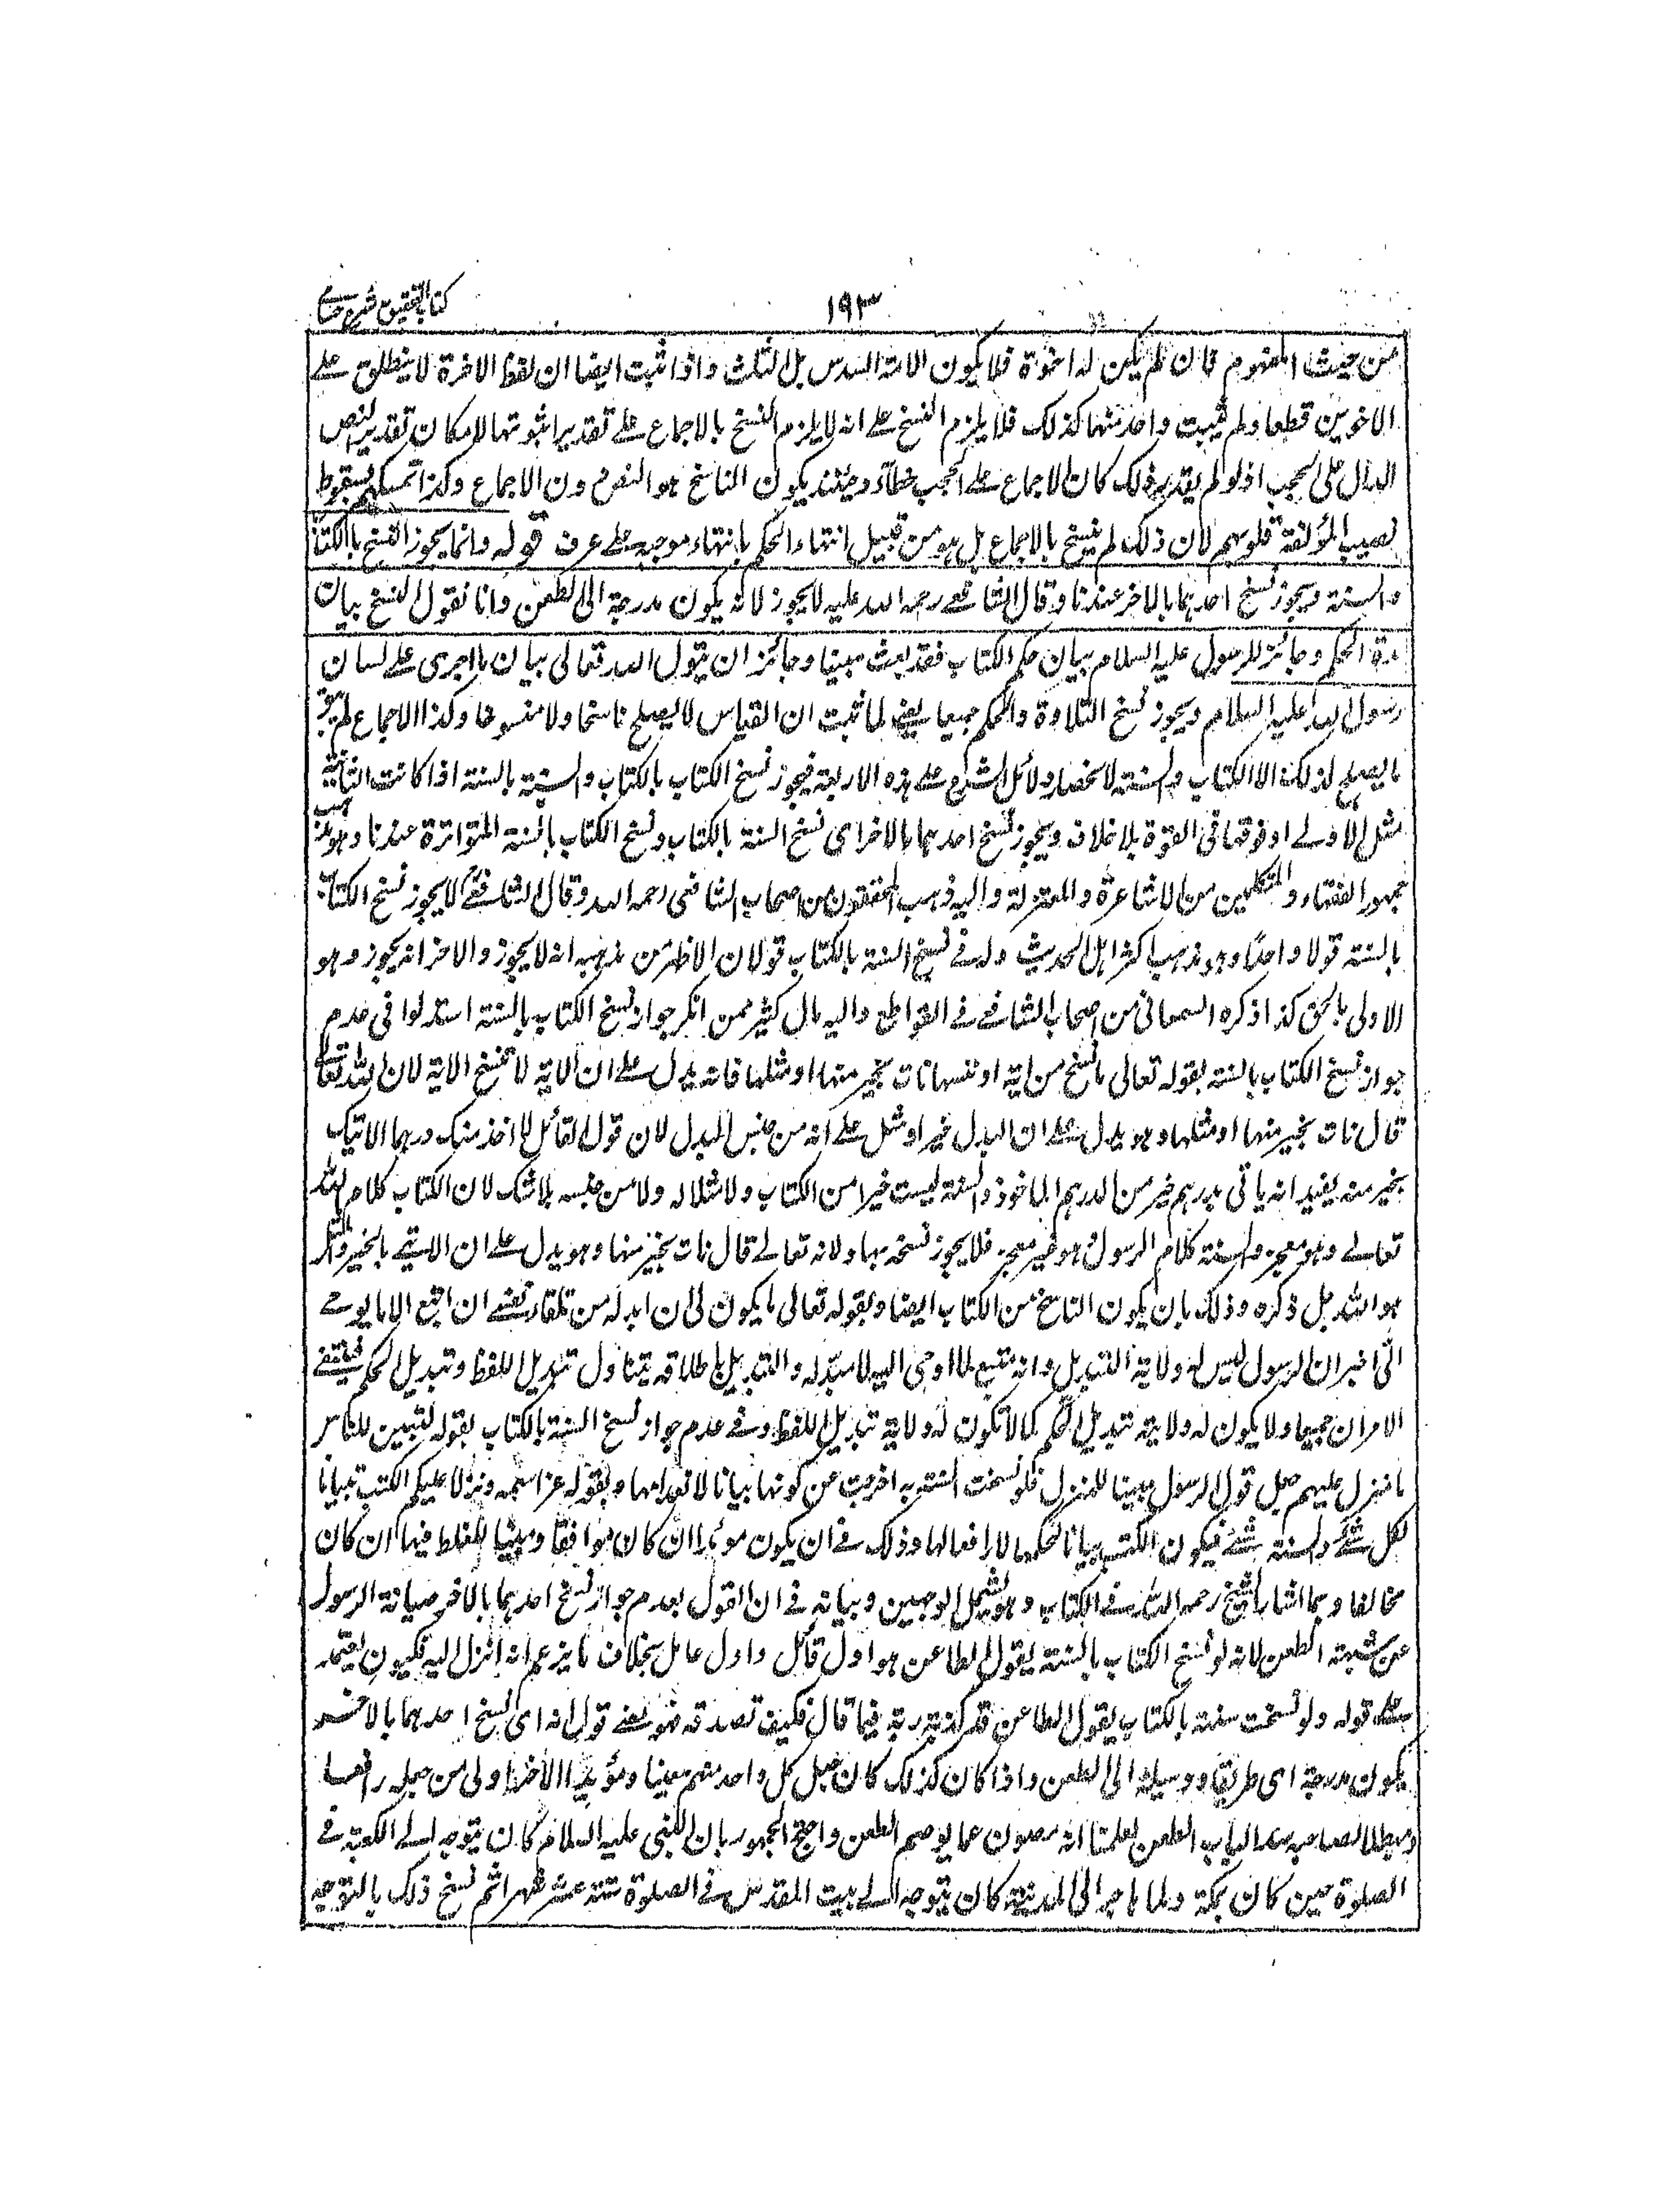 كتاب التحقيق شرح حسامي
١٩٣
من حيث المفهوم فان لم يكن له اخوة فلا يكون لامه السدس بل الثلث واذا ثبت ايضا ان لفظ الاخوة لا ينطلق على
الاخوين قطعا ولم يثبت واحد منهما كذلك فلا يلزم النسخ على انه لا يلزم النسخ بالاجماع على تقدير ثبوتهما لامكان تقدير النص
الدال على الحجب اذ لو لم يقدر ذلك كان الاجماع على الحجب خطأ وحينئذ يكون الناسخ هو النص دون الاجماع وكذا تمسكهم بسقوط
نصيب المؤلفة قلوبهم لان ذلك لم ينسخ بالاجماع بل هو من قبيل انتهاء الحكم بانتهاء موجبه على عرف قوله وانما يجوز النسخ بالكتاب
والسنة ويجوز نسخ احدهما بالاخر عندنا وقال الشافعي رحمه الله عليه لا يجوز لانه يكون مدرجة الى الطعن وانا نقول النسخ بيان
مدة الحكم وجائز للرسول عليه السلام بيان حكم الكتاب فقد بعث مبينا وجائز ان يتول الله تعالى بيان ما اجرى على لسان
رسول الله عليه السلام ويجوز نسخ التلاوة والحكم جميعا يعنى لما ثبت ان القياس لا يصلح ناسخا ولا منسوخا وكذا الاجماع لم يبق
ما يصلح لذلك الا الكتاب والسنة لانحصار دلائل الشرع على هذه الاربعة فيجوز نسخ الكتاب بالكتاب والسنة بالسنة اذا كانت الثانية
مثل الاولى او فوقها فى القوة بلا خلاف ويجوز نسخ احدهما بالاخر اى نسخ السنة بالكتاب ونسخ الكتاب بالسنة المتواترة عندنا وهو مذهب
جمهور الفقهاء والمتكلمين من الاشاعرة والمعتزلة واليه ذهب المحققون من اصحاب الشافعى رحمه الله وقال الشافعى لا يجوز نسخ الكتاب
بالسنة قولا واحدا وهو مذهب اكثر اهل الحديث وله فى نسخ السنة بالكتاب قولان الاظهر من مذهبه انه لا يجوز والاخر انه يجوز وهو
الاولى بالحق كذا ذكره السمعانى من اصحاب الشافعى فى القواطع واليه مال كثير ممن انكر جواز نسخ الكتاب بالسنة استدلوا فى عدم
جواز نسخ الكتاب بالسنة بقوله تعالى ما ننسخ من اية او ننسها نات بخير منها او مثلها فانه يدل على ان الاية لا تنسخ الا باية لان الله تعالى
قال نات بخير منها او مثلها وهو يدل على ان البدل خير او مثل على انه من جنس المبدل لان قول القائل لا اخذ منك درهما الا اتيك
بخير منه يفيد انه ياتى بدرهم خير من الدرهم الماخوذ والسنة ليست خيرا من الكتاب ولا مثلا له ولا من جنسه بلا شك لان الكتاب كلام الله
تعالى وهو معجز والسنة كلام الرسول وهو غير معجز فلا يجوز نسخه بها ولانه تعالى قال نات بخير منها وهو يدل على ان الاتي بالخير والمثل
هو الله جل ذكره وذلك بان يكون الناسخ من الكتاب ايضا وبقوله تعالى ما يكون لى ان ابدله من تلقاء نفسى ان اتبع الا ما يوحى
الى اخبر ان الرسول ليس له ولاية التبديل وانه متبع لما اوحى اليه لا مبدل له والتبديل باطلاقه يتناول تبديل اللفظ وتبديل الحكم فينتفى
الامران جميعا ولا يكون له ولاية تبديل الحكم كما لا تكون له ولاية تبديل اللفظ وفى عدم جواز نسخ السنة بالكتاب بقوله لتبين للناس
ما نزل عليهم جعل قول الرسول مبينا للمنزل فلو نسخت السنة به اخرجت عن كونها بيانا لانعدامها وبقوله عز اسمه ونزلا عليكم الكتب تبيانا
لكل شئ والسنة شئ فيكون الكتب بيانا لحكمها لا رافعا لها وذلك فى ان يكون مؤيدا ان كان موافقا ومبينا للغلط فيها ان كان
مخالفا وبما اشار الشيخ رحمه الله فى الكتاب وهو يشمل الوجهين وبيانه فى ان القول بعدم جواز نسخ احدهما بالاخر صيانة الرسول
عن شبهة الطعن لانه لو نسخ الكتاب بالسنة يقول الطاعن هو اول قائل واول عامل بخلاف ما يزعم انه انزل اليه فكيون يعتمد
على قوله ولو نسخت سنته بالكتاب يقول الطاعن قد كذبه ربه فيما قال فكيف نصدقه فهو يعنى قوله انه اى نسخ احدهما بالاخر
يكون مدرجة اى طريقا ووسيلة الى الطعن واذا كان كذلك كان جعل كل واحد منهم معينا ومؤيدا للاخر اولى من جعله رافعا
ومبطلا لصاحبه سدا لباب الطعن لعلمنا انه مصون عما يوهم الطعن واحتج الجمهور بان النبى عليه السلام كان يتوجه الى الكعبة فى
الصلوة حين كان بمكة ولما هاجر الى المدينة كان يتوجه الى بيت المقدس فى الصلوة ستة عشر شهرا ثم نسخ ذلك بالتوجه